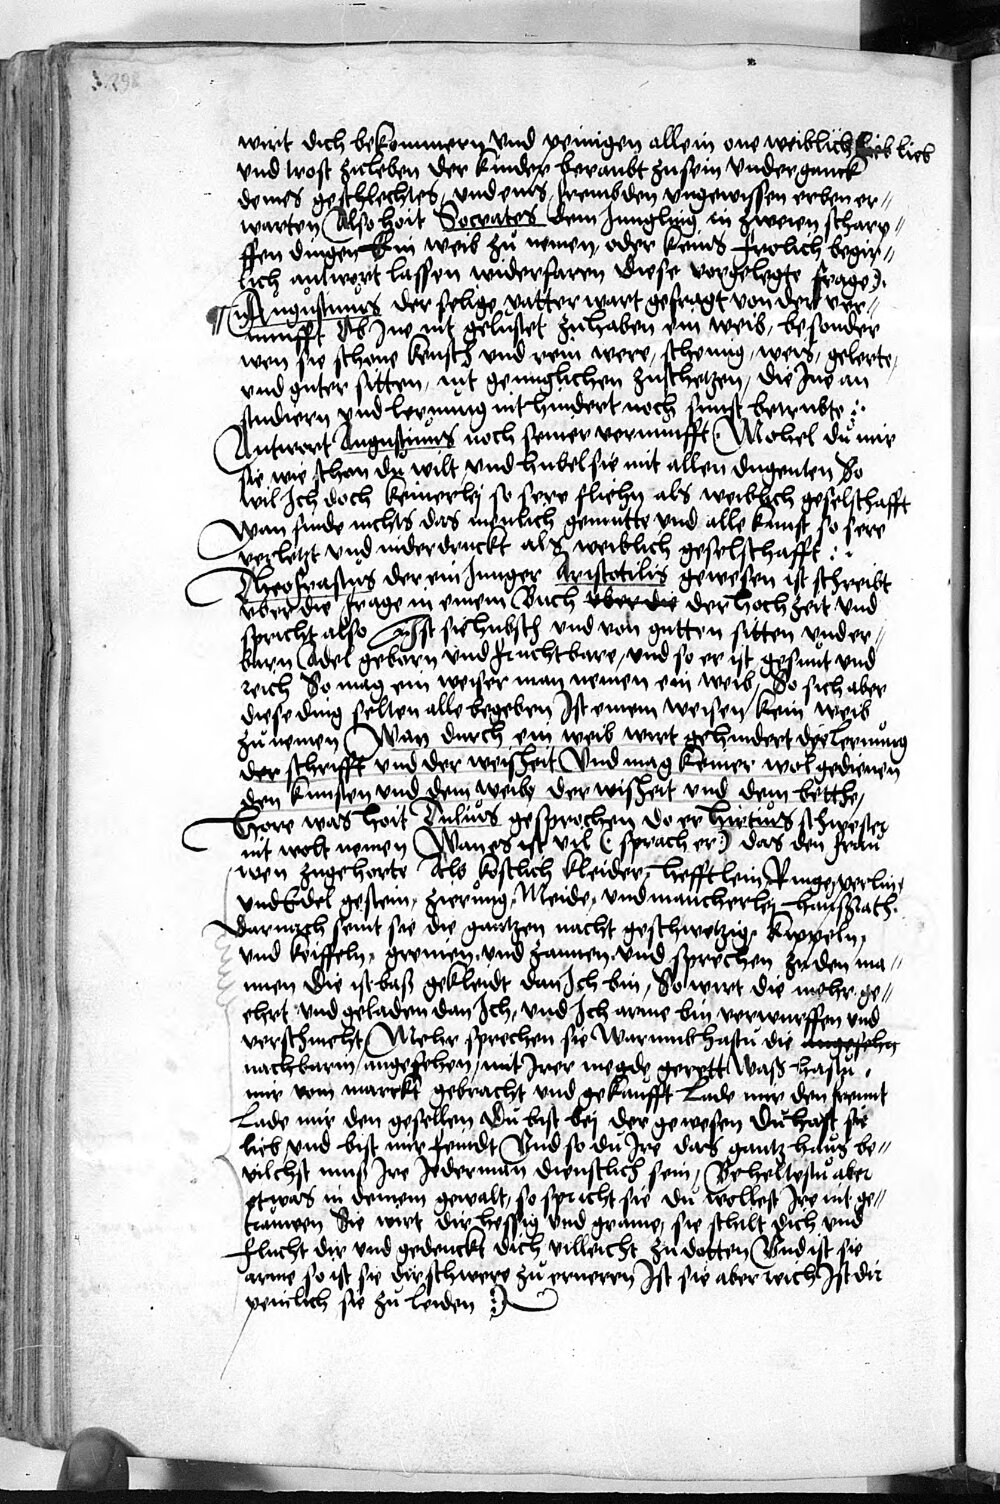 wirt dich bekommern vnd peinigen allein one weiblich lieb
vnd trost zuleben der kinder beraubt zusein vnderganck
deines geschlechtes, vnd eins frembden vngewissen erben er〃
warten Also hoit Socrates dem Jungling in zweien scharp〃
ffen dingen Ein weib zu nemen, oder keins frolich begir〃
lich antwort lassen widerfaren diese vorgelegte frage).
Augustinus der selige vatter wart gefragt von der ver〃
nunfft Ob Ine nit gelustet zuhaben ein weib, besonder
wen sie schone keusch vnd rein were, schemig, weis, gelerte,
vnd guter sitten, nit genuglichen zuschetzen, die Ine an
studiern vnd lernung nit hindert noch sunst betrubte :·
Antwort Augustinus noch seiner vernunfft. Mohel du mir
sie wie schon du wilt vnd hubel sie mit allen dugenten So
wil Ich doch keinerlej so sere fliehn als weiblich geselschafft
Wan finde nichts das menlich gemutte vnd alle kunst so sere
verletzt vnd niderdruckt als weiblich geselschafft : ·
Theofrastus der ein Junger Aristotilis gewesen ist schreibt
vber die frage in einem Buch vber die der hochzeit vnd
spricht also Ist sie hubsch vnd von gutten sitten vnd er〃
barn Adel geborn vnd fruchtbare, vnd so er ist gesunt vnd
reich So mag ein weiser man nemen ein weib, So sich aber
diese ding selten alle begeben Ist einem weisen kein weib
zu nemen Wan durch ein weib wirt gehindert die lernung
der schrifft vnd der weisheit Vnd mag keiner wol gedienen
den kunsten vnd dem weibe der wisheit vnd dem betthe,
Hore was hoit Tulius gesprochen do er hirtius schwester
nit wolt nemen Wan es ist vil (: sprach er:) das den frau
wen zugehorte Als kostlich kleider, hefftlein Ringe, perlin,
vnd Edel gestein, zierung, Meide, vnd mancherlej haußrath.
Darnach seint sie die gantzen nacht geschwetzig, kippeln,
vnd keiffeln, greinen, vnd zannen, vnd sprechen zu den ma〃
nnen Die ist baß gekleidt dan Ich bin, So wirt die mehr ge〃
ehrt vnd geladen dan Ich, vnd Ich arme bin verwurffen vnd
verschmeht Mehr sprechen sie Warumb hastu die angesehn
nachbarin angesehen, mit Irer megde gerett Waß hastu
mir vom marckt gebracht vnd gekaufft Lade mir den freunt
Lade mir den gesellen Du bist bej der gewesen Du hast sie
lieb vnd bist mir feindt Vnd so du Ire das gantz haus be〃
vilchst mus Ire Jederman dienstlich sein, Beheltestu aber
etwas in deinem gewalt, so spricht sie du wollest Ire nit ge〃
trauwen Sie wirt dir hessig vnd grame, sie schilt dich vnd
flucht dir vnd gedenckt dich villeicht zu dotten Vnd ist sie
arme so ist sie dir schwere zu ernerrn Ist sie aber reich Ist dir
peinlich sie zu leiden :)